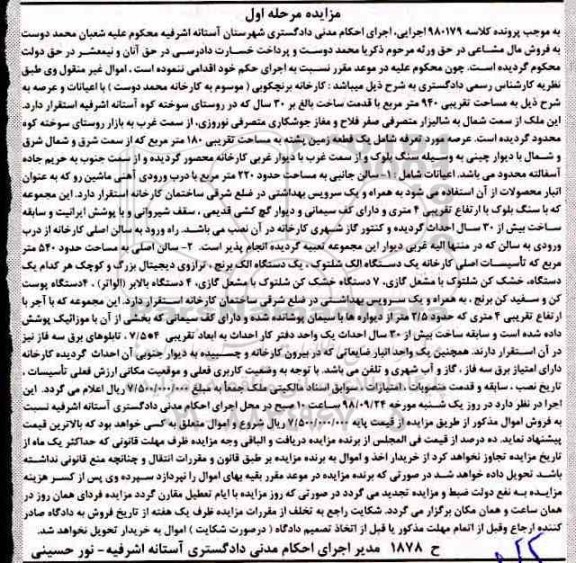 مزایده مرحله اول
به موجب پرونده کلاسه ۹۸۰۱۷۹ اجرایی، اجرای احکام مدنی دادگستری شهرستان آستانه اشرفیه محکوم علیه شعبان محمد دوست
به فروش مال مشاعی در حق ورثه مرحوم ذکریا محمد دوست و پرداخت خسارت دادرسی در حق آنان و نیمعشر در حق دولت
محکوم گردیده است. چون محکوم علیه در موعد مقرر نسبت به اجرای حکم خود اقدامی ننموده است ، اموال غیر منقول وی طبق
نظریه کارشناس رسمی دادگستری به شرح ذیل میباشد : کارخانه برنجکوبی ( موسوم به کارخانه محمد دوست ) با اعیانات و عرصه به
شرح ذیل به مساحت تقریبی ۹۴۰ متر مربع با قدمت ساخت بالغ بر ۳۰ سال که در روستای سوخته کوه آستانه اشرفیه استقرار دارد.
این ملک از سمت شمال به شالیزار متصرفی صفر فلاح و مغاز جوشکاری متصرفی نوروزی، از سمت غرب به بازار روستای سوخته کوه
محدود گردیده است. عرصه مورد تعرفه شامل یک قطعه زمین پشته به مساحت تقریبی ۱۸۰ متر مربع که از سمت شرق و شمال شرق
و شمال با دیوار چینی به وسیله سنگ بلوک و از سمت غرب با دیوار غربی کارخانه محصور گردیده و از سمت جنوب به حریم جاده
آسفالته محدود می باشد. اعیانات شامل : ۱- سالن جانبی به مساحت حدود ۲۲۰ متر مربع با درب ورودی آهنی ماشین رو که به عنوان
انبار محصولات از آن استفاده می شود به همراه و یک سرویس بهداشتی در ضلع شرقی ساختمان کارخانه استقرار دارد. این مجموعه
که با سنگ بلوک با ارتفاع تقریبی ۴ متری و دارای کف سیمانی و دیوار گچ کشی قدیمی ، سقف شیروانی و با پوشش ایرانیت و سابقه
ساخت بیش از ۳۰ سال احداث گردیده و کنتور گاز شهری کارخانه در آن نصب می باشد. راه ورود به سالن اصلی کارخانه از درب
ورودی به سالن که در منتها الیه غربی دیوار این مجموعه تعبیه گردیده انجام پذیر است. ۲- سالن اصلی به مساحت حدود ۵۴۰ متر
مربع که تأسیسات اصلی کارخانه یک دستگاه الک شلتوک ، یک دستگاه الک برنج ، ترازوی دیجیتال بزرگ و کوچک هر کدام یک
دستگاه، خشک کن شلتوک با مشعل گازی، ۷ دستگاه خشک کن شلتوک با مشعل گازی، ۴ دستگاه بالابر (الواتر) ، ۴دستگاه پوست
کن و سفید کن برنج ، به همراه و یک سرویس بهداشتی در ضلع شرقی ساختمان کارخانه استقرار دارد. این مجموعه که با آجر با
ارتفاع تقریبی ۴ متری که حدود ۲/۵ متر از دیواره ها با سیمان پوشانده شده و دارای کف سیمانی که بخشی از آن با موزائیک پوشش
داده شده است و سابقه ساخت بیش از ۳۰ سال احداث یک واحد دفتر کار احداث به ابعاد تقریبی ، تابلوهای برق سه فاز نیز
در آن استقرار دارند. همچنین یک واحد انبار ضایعاتی که در بیرون کارخانه و چسبیده به دیوار جنوبی آن احداث گردیده کارخانه
دارای امتیاز برق سه فاز ، گاز و آب شهری و تلفن می باشد. با توجه به وضعیت کاربری فعلی و موقعیت مکانی ارزش فعلی تأسیسات ،
تاریخ نصب ، سابقه و قدمت منصوبات ، امتیازات ، سوابق اسناد مالکیتی ملک جمعاً به مبلغ ۷/۵۰۰/۰۰۰/۰۰۰ ریال اعلام می گردد. این
اجرا در نظر دارد در روز یک شنبه مورخه ۹۸/۰۹/۲۴ ساعت ۱۰ صبح در محل اجرای احکام مدنی دادگستری آستانه اشرفیه نسبت
به فروش اموال مذکور از طریق مزایده از قیمت پایه ۷/۵۰۰/۰۰۰/۰۰۰ ریال شروع و اموال متعلق به کسی خواهد بود که بالاترین قیمت
پیشنهاد نماید. ده درصد از قیمت فی المجلس از برنده مزایده دریافت و الباقی وجه مزایده ظرف مهلت قانونی که حداکثر یک ماه از
تاریخ مزایده تجاوز نخواهد کرد از خریدار اخذ و اموال به برنده مزایده بر طبق قانون و مقررات انتقال و چنانچه منع قانونی نداشته
باشد تحویل داده خواهد شد در صورتی که برنده مزایده در موعد مقرر بقیه بهای اموال را نپردازد سپرده وی پس از کسر هزینه
مزایده به نفع دولت ضبط و مزایده تجدید می گردد در صورتی که روز مزایده با ایام تعطیل مقارن گردد مزایده فردای همان روز در
همان ساعت و همان مکان برگزار می گردد. شکایت راجع به تخلف از مقررات مزایده ظرف یک هفته از تاریخ فروش به دادگاه صادر
کننده ارجاع وقبل از اتمام مهلت مذکور یا قبل از اتخاذ تصمیم دادگاه ( درصورت شکایت ) اموال به خریدار تحویل نخواهد شد.
ح ۱۸۷۸ مدیر اجرای احکام مدنی دادگستری آستانه اشرفیه - نور حسینی